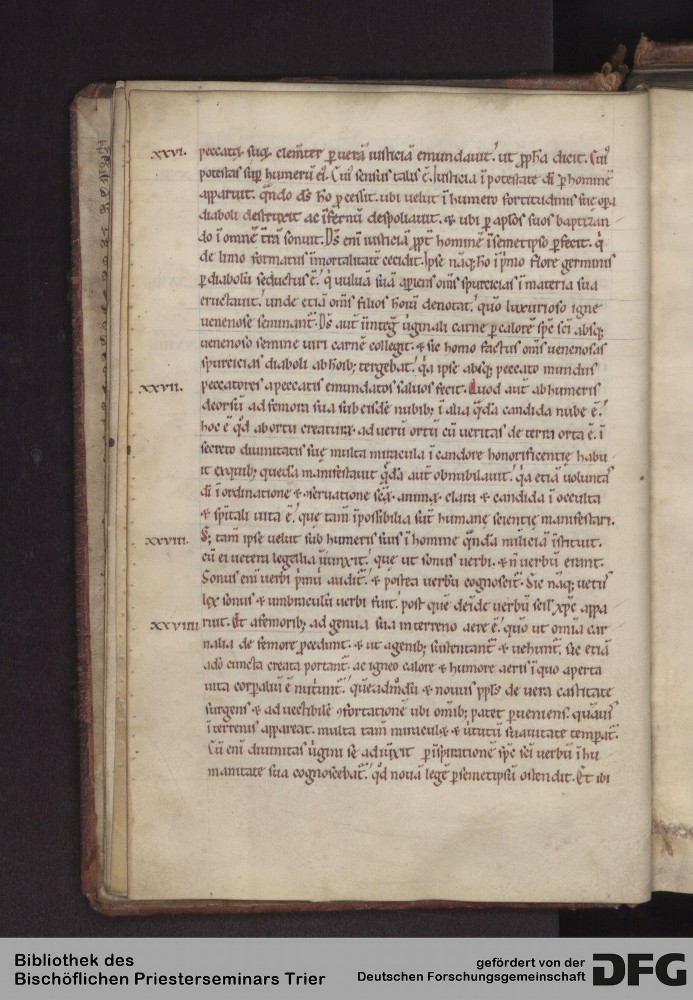 xxvi. peccatꝝ suꝝ clemt̄er ꝑ uerā iusticiā emundauit. ut ꝓph̄a dicit. Cui᷒
potestas suꝑ humerū ei᷒. Cui᷒ sensus talis ē. Iusticia ī potestate dī ꝑ hominē
apparuit. qn̄do ds̄ hō ꝓcessit. ubi uelut ī humero fortitudinis suę opa
diaboli destruxit ac īfernū despoliauit. ⁊ ubi ꝑ aplōs suos baptizan
do ī omnē tr̄ā sonuit. Ds̄ enī iusticiā ꝓpt̄ hominē īsemetipso ꝑfecit. q̇
de limo formatus īmortalitatē cecidit. Ipse nāq; hō ī p̄mo flore germinis
ꝑ diabolū seductus ē. q̇ uuluā suā aperiens om̄s spurcicias ī materia sua
eructauit. unde etiā om̄s filios hoīū denotat. quō luxurioso igne
uenenose seminant᷑. Ds̄ aut̄ īinteg̅ uirginali carne ꝑ calorē spc̄ sc̄i absq;
uenenoso semine uiri carnē collegit. ⁊ sic homo factus om̄s uenenosas
spurcicias diaboli ab hoīb; tergebat. q̇a ipse absq; peccato mundus
xxvii. peccatores a peccatis emundatos saluos fecit. Quod aut̄ ab humeris
deorsū ad femora sua sub eisdē nubib; ī alia q̇dā candida nube ē.
hoc ē qd̄ ab ortu creaturꝝ ad uerū ortū cū ueritas de terra orta ē. ī
secreto diuinitatis suę multa miracula ī candore honorificentię habu
it ex quib; quedā manifestauit q̇dā aut̄ obnubilauit. q̇a etiā uoluntas
dī ī ordinatione ⁊ ꝯseruatione scꝝ animꝝ clara ⁊ candida ī occulta
⁊ spītali uita ē. que tam̄ īpossibilia sūt humanę scientię manifestari.
xxviii. S; tam̄ ipse uelut sub humeris suis ī homine qn̄dā miliciā īstituit.
cū ei uetera legalia iūnxit. que ut sonus uerbi. ⁊ n̄ uerbū erant.
Sonus enī uerbi p̄mū audit᷑. ⁊ postea uerbū cognoscit᷑. Sic nāq; uetus
lex sonus ⁊ umbraculū uerbi fuit. post que deīde uerbū scil᷒ xp̄c appa
xxviiii. ruit. Et a femorib; ad genua sua in terreno aere ē. quō ut omīa car
nalia de femore ꝓcedunt. ⁊ ut a genib; sustentant᷑ ⁊ uehunt᷑. sic etiā
adō cuncta creata portant᷑. ac igneo calore ⁊ humore aeris ī quo aperta
uita corꝑaliū ē nutriunt᷑. queadmodū ⁊ nouus ppls̄ de uera castitate
surgens ⁊ ad uectibilē ꝯfortationē ubi omīb; patet ꝑueniens. quāuis
ī terrenis appareat. multa tam̄ miraculꝝ ⁊ uirtutū suauitate temꝑat᷑.
Cū enī diuinitas uirgini se adiūxit ꝑ īspirationē spc̄ sc̄i uerbū ī hu
manitate sua cognoscebat᷑. qd̄ nouā legē ꝑ semetipsū ostendit. Et ibi
Bibliothek des
Bischöflichen Priesterseminars Trier
gefördert von der
Deutschen Forschungsgemeinschaft
DFG